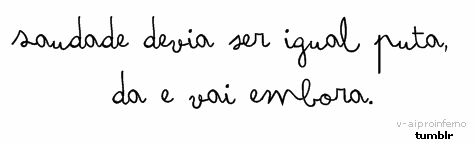 saudade devia ser igual puta,
da e vai embora.
v-aiproinferno
tumblr